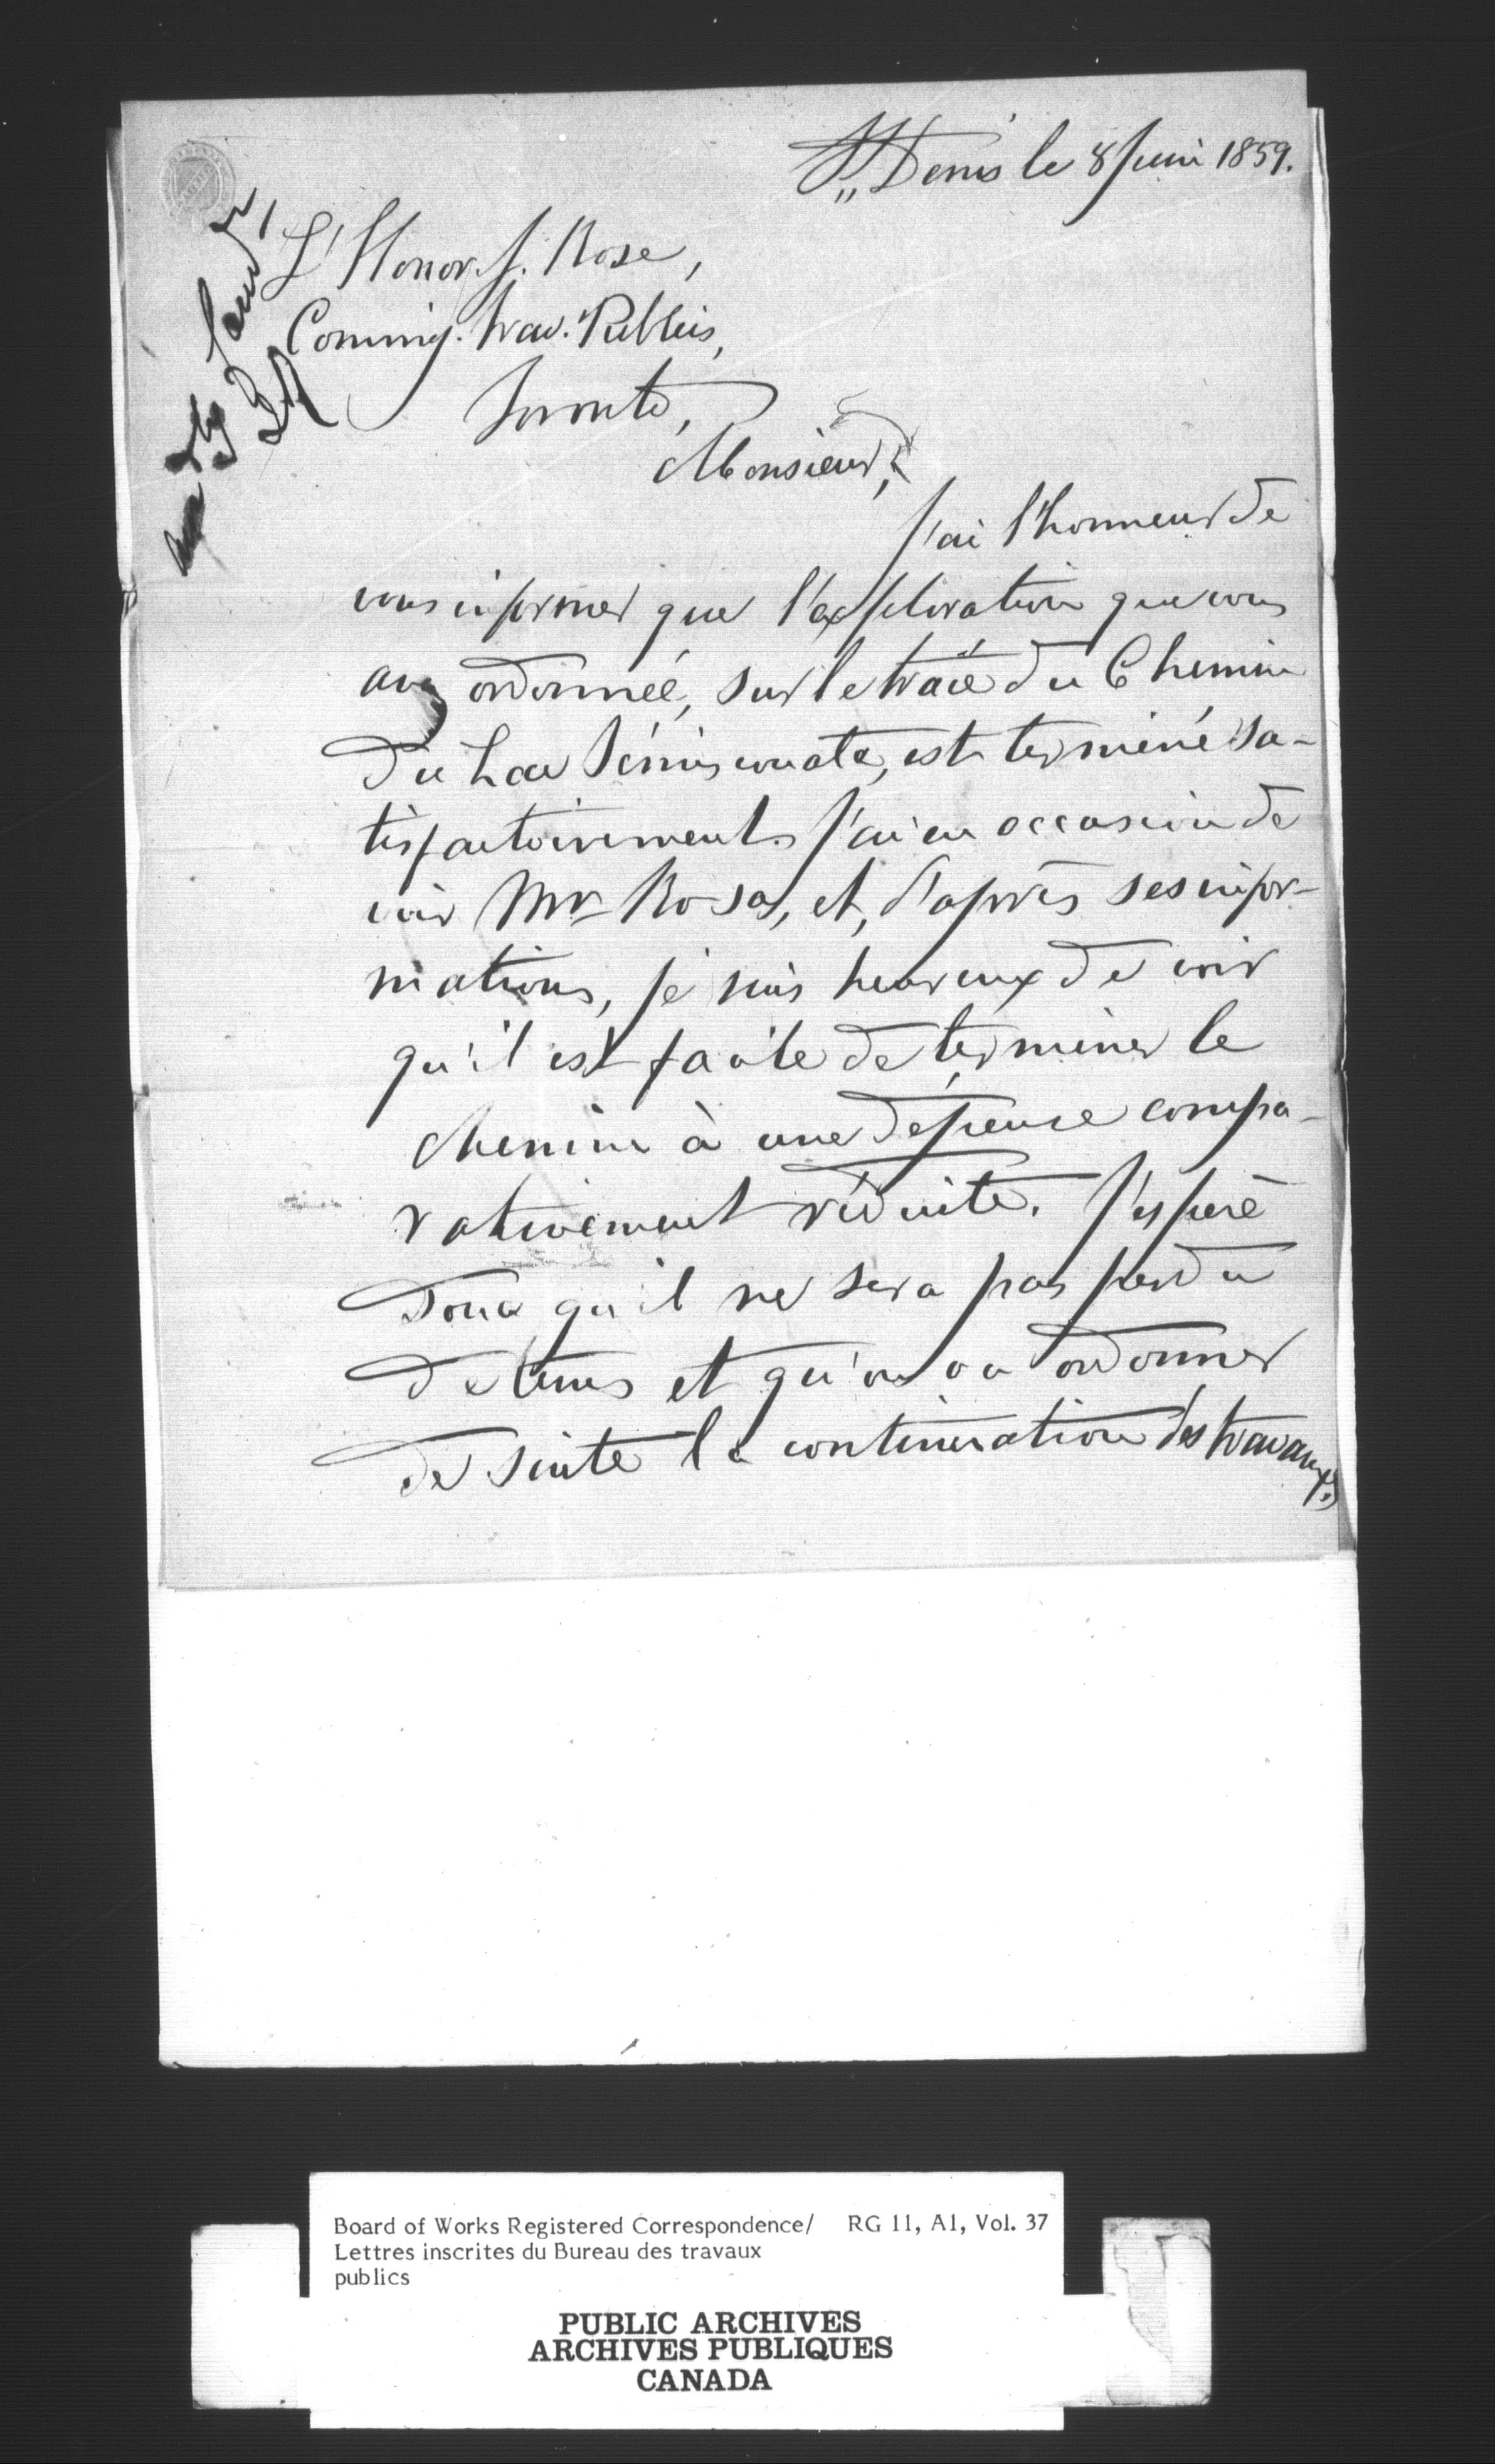 St Denis le 8 Juin 1859.
L'Honor. J. Rose,
Commiss. Trav. Publics,
Toronto,
Monsieur,
J'ai l'honneur de
vous informer que l'exploration que vous
avez ordonnée, sur le tracé du Chemin
du Lac Témiscouata, est terminé sa-
tisfactoirement. J'ai eu occasion de
voir Mr Rosa, et, d'après ses infor-
mations, je suis heureux de voir
qu'il est facile de terminer le
chemin à une dépense compa-
rativement réduite. J'espère
donc qu'il ne sera pas perdu
de tems et qu'on va ordonner
de suite la continuation des travaux,
Board of Works Registered Correspondence/ RG 11, A1, Vol. 37
Lettres inscrites du Bureau des travaux
publics
PUBLIC ARCHIVES
ARCHIVES PUBLIQUES
CANADA